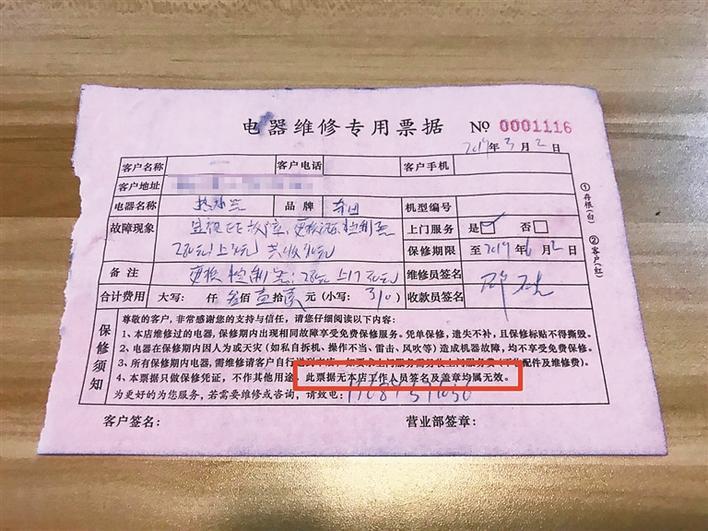 电器维修专用票据 № 0001116
2019年3月2日
客户名称 客户电话 客户手机
客户地址
电器名称 热水器 品牌 机型编号
故障现象 上门服务 是☑ 否□
保修期限 至2019年6月2日
备注 更换控制器 维修员签名
合计费用 大写: 仟叁佰壹拾 元(小写: 310) 收款员签名
保修须知
尊敬的客户,非常感谢您的支持与信任,请您仔细阅读以下内容:
1、本店维修过的电器,保修期内出现相同故障享受免费保修服务。凭单保修,遗失不补,且保修标贴不得撕毁。
2、电器在保修期内因人为或天灾(如私自拆机、操作不当、雷击、风吹等)造成机器故障,均不享受免费保修。
3、所有保修期内电器,需维修请客户自行
4、本票据只做保修凭证,不作其他用途,此票据无本店工作人员签名及盖章均属无效。
为更好的为您服务,若需要维修或咨询,请致电:
客户签名: 营业部签章:
①存根(白)
②客户(红)